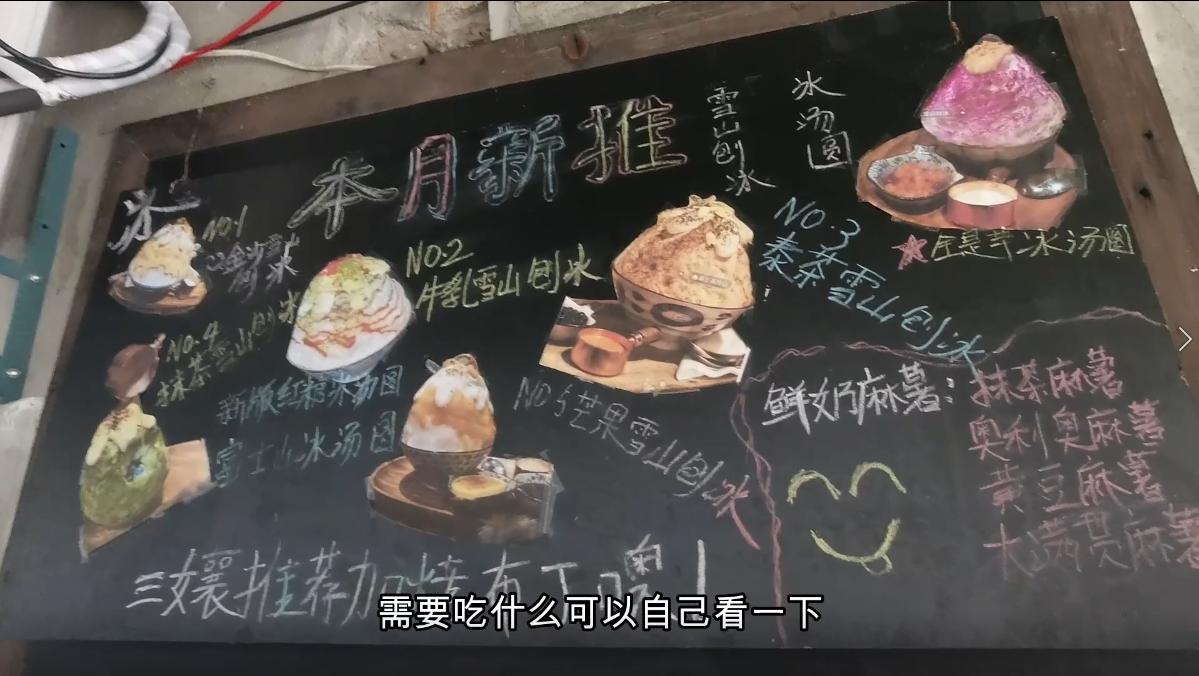 本月新推
雪山刨冰
冰汤圆
冰
NO.1
NO.2
牛乳雪山刨冰
NO.3
泰茶雪山刨冰
全是芋冰汤圆
NO.4
抹茶雪山刨冰
新版红糖冰汤圆
富士山冰汤圆
NO5芒果雪山刨冰
鲜奶麻薯:
抹茶麻薯
奥利奥麻薯
黄豆麻薯
大满贯麻薯
三孃推荐加
布丁噢!
需要吃什么可以自己看一下